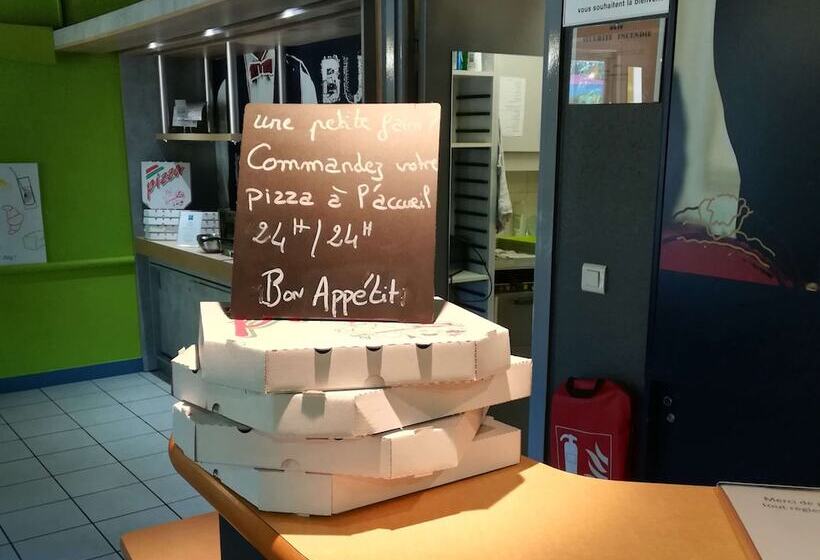 vous souhaitent la bienven
SECURITE INCENDIE
BU
une petite faim ?
Commandez votre
pizza à l'accueil
24H/24H
Bon Appétit
pizza
Merci de
tout regle